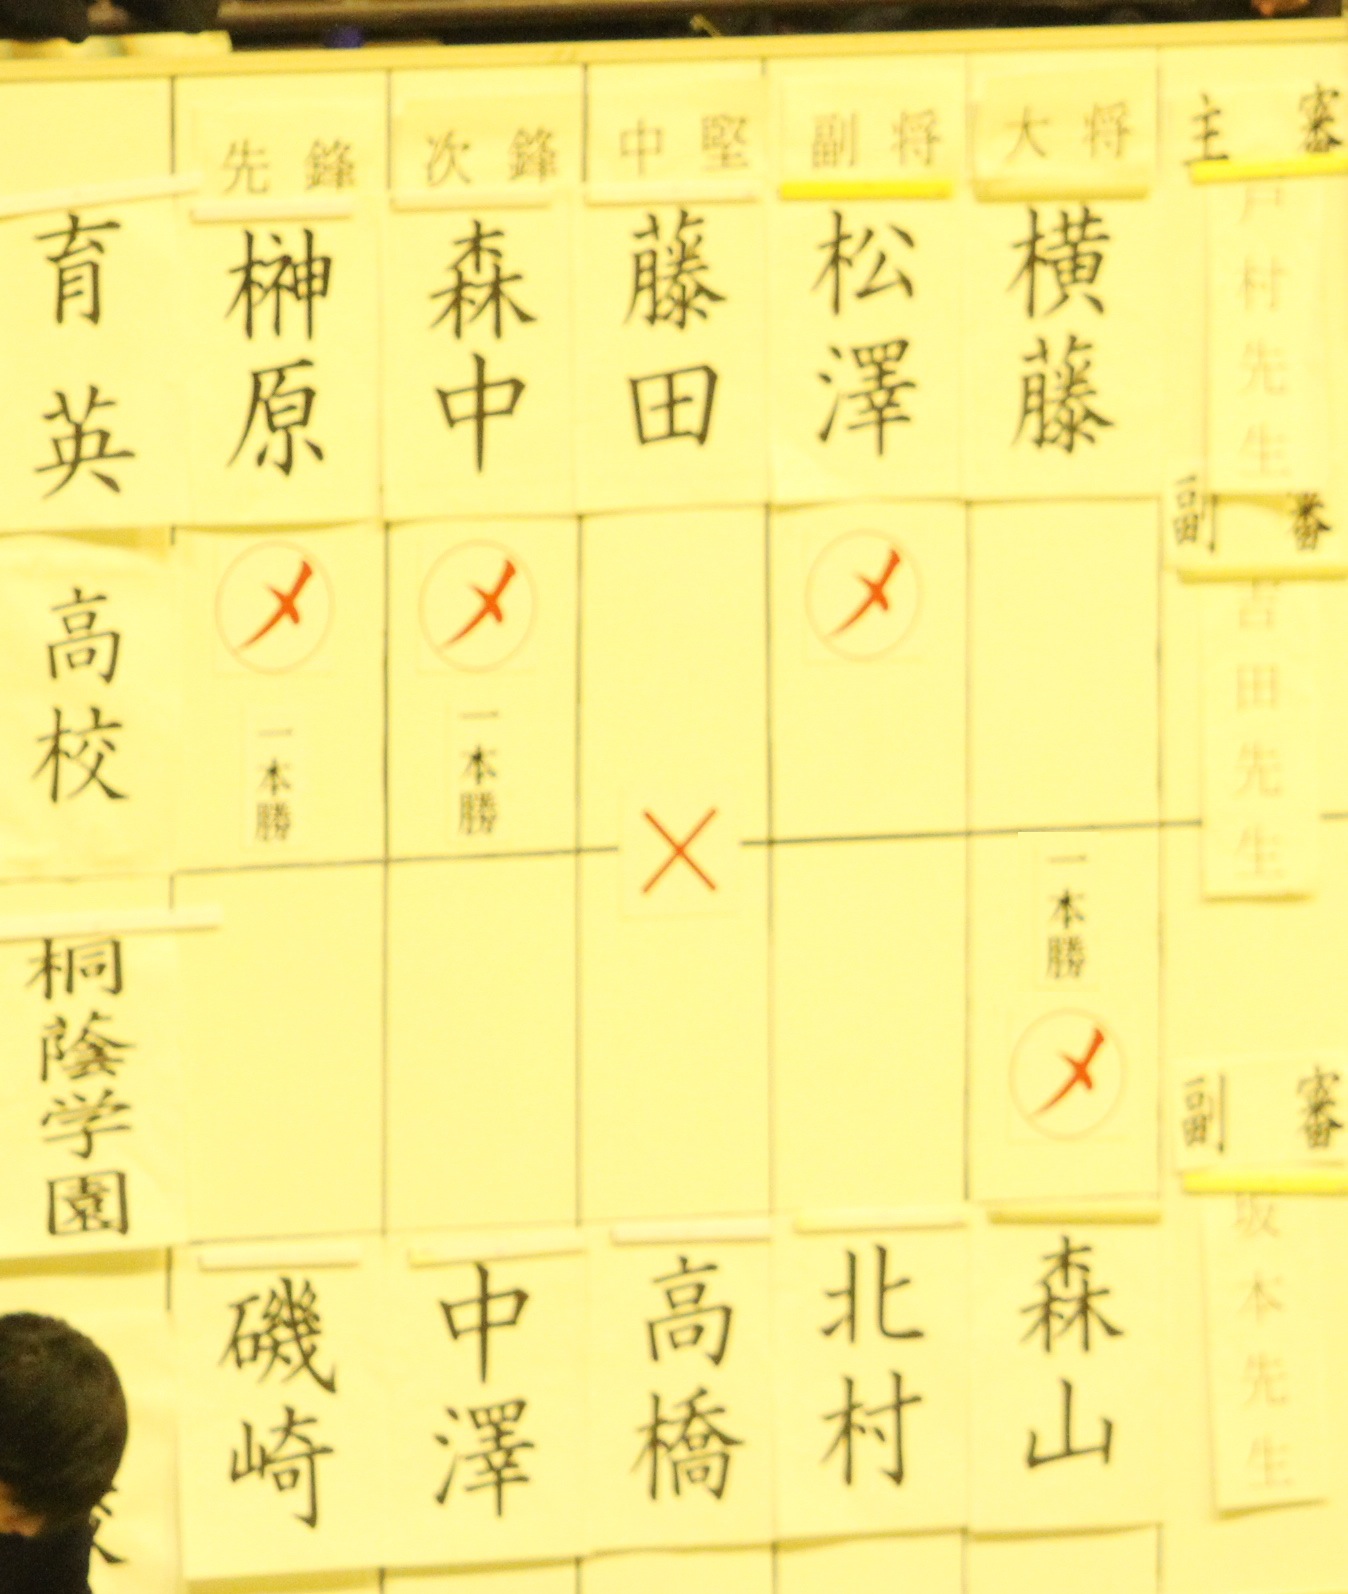 先鋒
次鋒
中堅
副将
大将
主審
育英
高校
榊原
森中
藤田
松澤
横藤
戸村先生
メ
メ
メ
副審
吉田先生
一本勝
一本勝
×
一本勝
メ
桐蔭学園
副審
坂本先生
磯崎
中澤
高橋
北村
森山